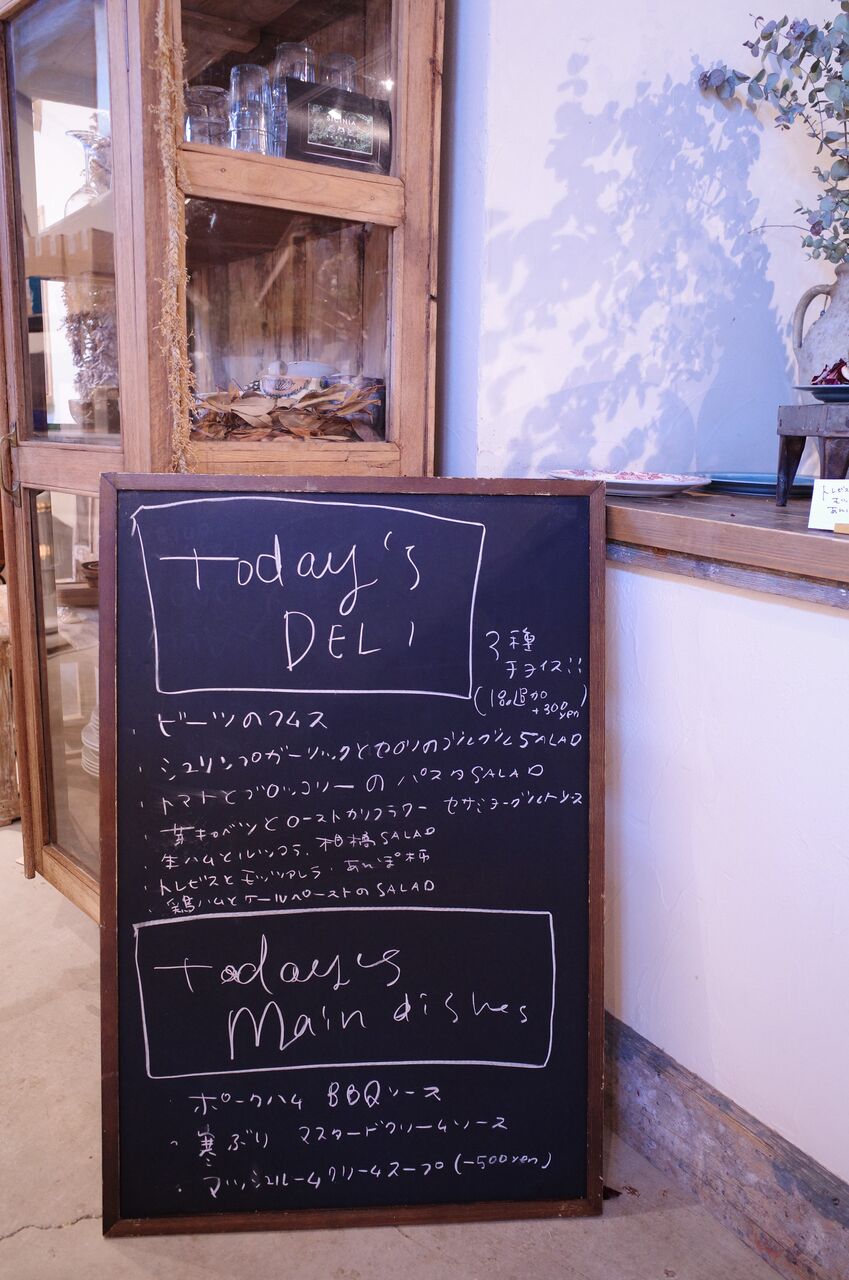 Today's
DELI
3種
チョイス!!
(1品追加
+300yen)
・ビーツのフムス
・シュリンプガーリックとセロリのブルグルSALAD
・トマトとブロッコリーのパスタSALAD
・芽キャベツとローストカリフラワー セサミヨーグルトソース
・生ハムとルッコラ、柑橘SALAD
・トレビスとモッツァレラ、あんぽ柿
・鶏ハムとケールペーストのSALAD
Today's
Main dishes
・ポークハム BBQソース
・寒ぶり マスタードクリームソース
・マッシュルームクリームスープ(-500yen)
トレビス